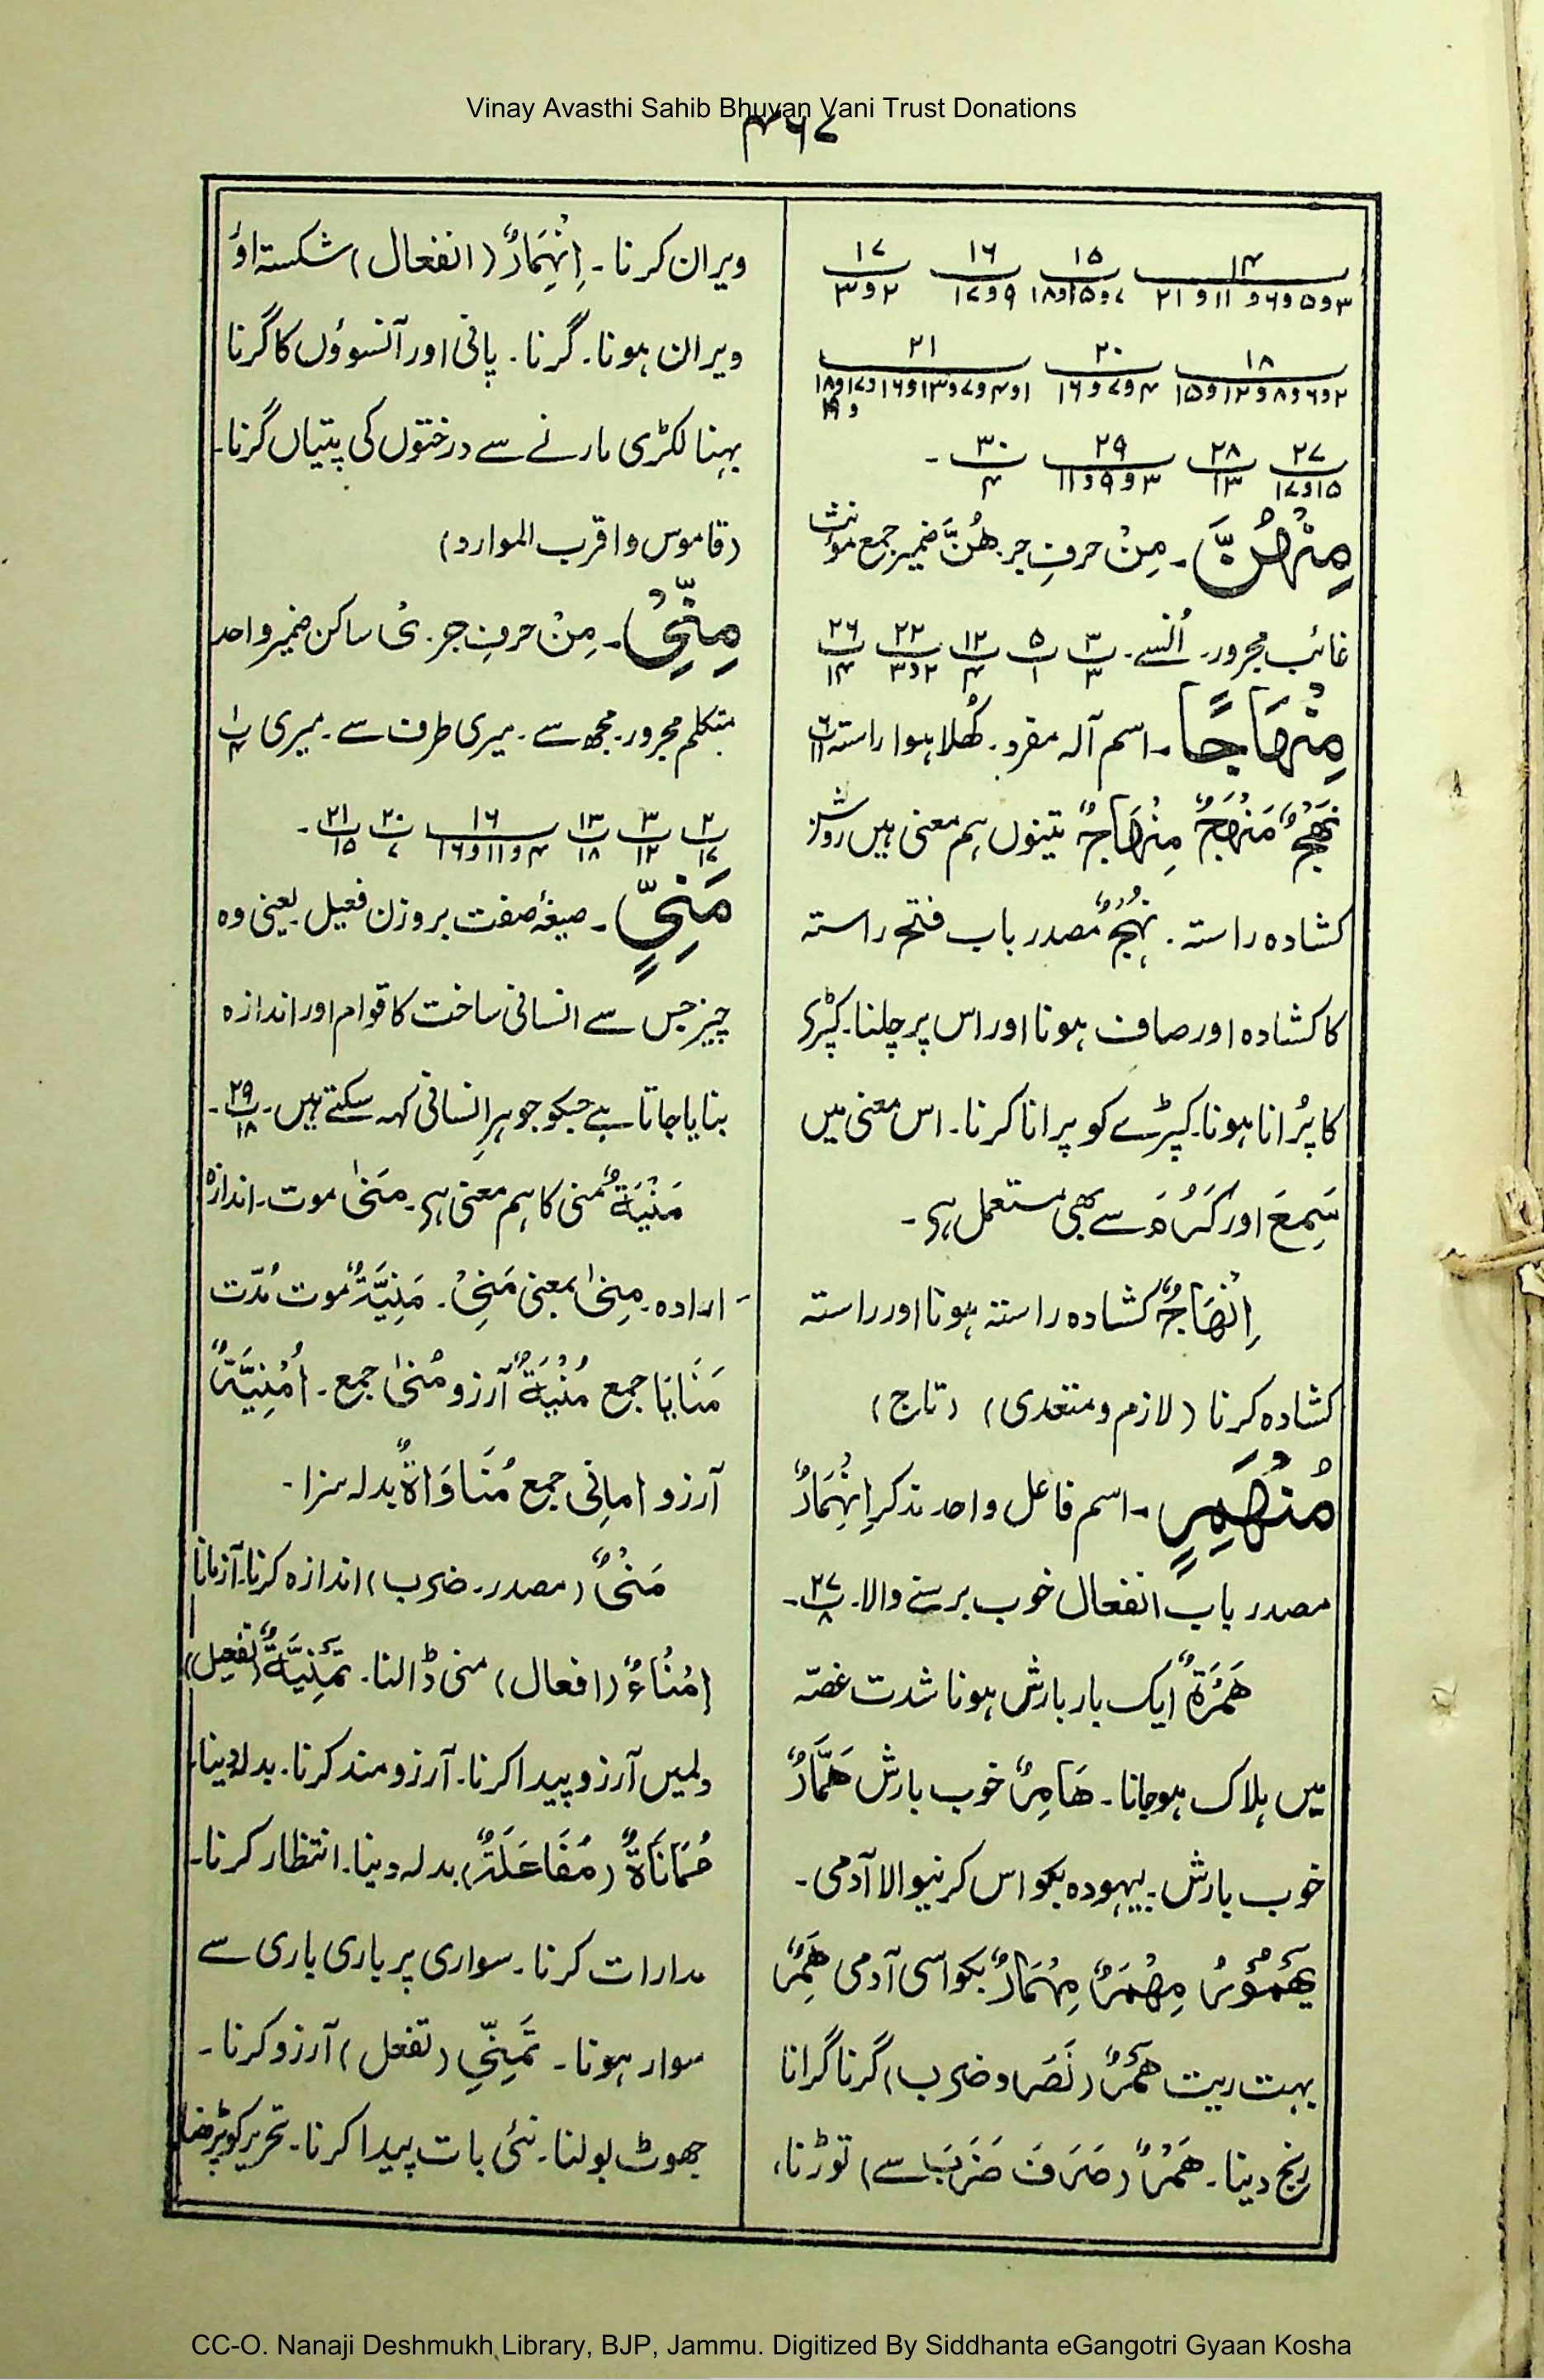 Vinay Avasthi Sahib Bhuvan Vani Trust Donations
۳۶۷
۱۴ ۱۵ ۱۶ ۱۷
۳و۵و۶و۱۱و۲۱ ۷و۱۵و۱۸ ۹و۱۷ ۲و۳
۱۸ ۲۰ ۲۱
۲و۶و۸و۱۲و۱۵ ۴و۷و۱۶ ۱و۴و۷و۱۳و۱۶و۱۷و۱۸
۲۷ ۲۸ ۲۹ ۳۰ -
۱۵و۱۷ ۱۳ ۳و۹و۱۱ ۴
مِنْهُنَّ۔ مِنْ حرفِ جر هُنَّ ضمیر جمع مؤنث
غائب مجرور۔ اُنسے۔ ۳/۳ ۵/۱ ۱۲/۴ ۲۲/۲و۳ ۲۶/۱۴
مِنْهَاجًا۔ اسم آلہ مفرد۔ کُھلا ہوا راستہ ۶/۱۱
نَهْجٌ مَنْهَجٌ مِنْهَاجٌ تینوں ہم معنی ہیں روشن
کشادہ راستہ۔ نَهْجٌ مصدر باب فتح راستہ
کا کشادہ اور صاف ہونا اور اس پر چلنا۔ کپڑے
کا پُرانا ہونا۔ کپڑے کو پرانا کرنا۔ اس معنی میں
سَمِعَ اور کَرُمَ سے بھی مستعمل ہے۔
اِنْهَاجٌ کشادہ راستہ ہونا اور راستہ
کشادہ کرنا (لازم و متعدی) (تاج)
مُنْهَمِرٍ۔ اسم فاعل واحد مذکر اِنْهِمَارٌ
مصدر باب انفعال خوب برسنے والا۔ ۲۷/۸۔
هَمْرَةٌ ایک بار بارش ہونا شدت غصّہ
میں ہلاک ہوجانا۔ هَامِرٌ خوب بارش هَمَّارٌ
خوب بارش۔ بیہودہ بکواس کرنیوالا آدمی۔
مِهْمَرٌ مِهْمَارٌ بکواسی آدمی هَمِرٌ
بہت ریت هَمْرٌ (نَصَرَ و ضرب) گرنا گرانا
رنج دینا۔ هَمْرٌ (صَرَفَ ضَرَبَ سے) توڑنا،
ویران کرنا۔ اِنْهِمَارٌ (انفعال) شکستہ اور
ویران ہونا۔ گرنا۔ پانی اور آنسوؤں کا گرنا
بہنا لکڑی مارنے سے درختوں کی پتیاں گرنا۔
(قاموس و اقرب الموارد)
مِنِّیْ۔ مِنْ حرفِ جر۔ یْ ساکن ضمیر واحد
متکلم مجرور۔ مجھ سے۔ میری طرف سے۔ میری ۱/۴
۲/۱۷ ۳/۱۲ ۱۳/۱۸ ۱۶/۴و۱۱و۱۶ ۲۰/۷ ۲۱/۱۵ -
مَنِیٍّ۔ صیغۂ صفت بروزن فعیل۔ یعنی وہ
چیز جس سے انسانی ساخت کا قوام اور اندازہ
بنایا جاتا ہے جسکو جوہرِ انسانی کہہ سکتے ہیں۔ ۲۹/۱۸۔
مَنْیَةٌ منی کا ہم معنی ہے۔ مَنٰی موت۔ اندازہ
ارادہ۔ مِنٰی بمعنی مَنِیْ۔ مَنِیَّةٌ موت مُدّت
مَنَایَا جمع مُنْیَةٌ آرزو مُنٰی جمع۔ اُمْنِیَّةٌ
آرزو امانی جمع مُنَاوَاةٌ بدلہ سزا۔
مَنْیٌ (مصدر۔ ضرب) اندازہ کرنا۔ آزمانا
اِمْنَاءٌ (افعال) منی ڈالنا۔ تَمْنِیَّةٌ (تفعیل)
دلمیں آرزو پیدا کرنا۔ آرزو مند کرنا۔ بدلہ دینا۔
مُمَانَاةٌ (مُفَاعَلَةٌ) بدلہ دینا۔ انتظار کرنا۔
مدارات کرنا۔ سواری پر باری باری سے
سوار ہونا۔ تَمَنِّیْ (تفعل) آرزو کرنا۔
جھوٹ بولنا۔ نئی بات پیدا کرنا۔ تحریر کو پڑھنا
CC-O. Nanaji Deshmukh Library, BJP, Jammu. Digitized By Siddhanta eGangotri Gyaan Kosha